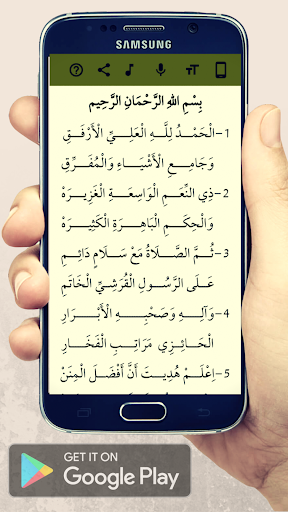 SAMSUNG
بِسْمِ اللهِ الرَّحْمَانِ الرَّحِيمِ
1- الْحَمْدُ لِلَّهِ الْعَلِيِّ الْأَرْفَقِ
وَجَامِعِ الْأَشْيَاءِ وَالْمُفَرِّقِ
2- ذِي النِّعَمِ الْوَاسِعَةِ الْغَزِيرَهْ
وَالْحِكَمِ الْبَاهِرَةِ الْكَثِيرَهْ
3- ثُمَّ الصَّلَاةُ مَعْ سَلَامٍ دَائِمِ
عَلَى الرَّسُولِ الْقُرَشِيِّ الْخَاتَمِ
4- وَآلِهِ وَصَحْبِهِ الْأَبْرَارِ
الْحَائِزِي مَرَاتِبَ الْفَخَارِ
5- اِعْلَمْ هُدِيتَ أَنَّ أَفْضَلَ الْمِنَنْ
GET IT ON
Google Play